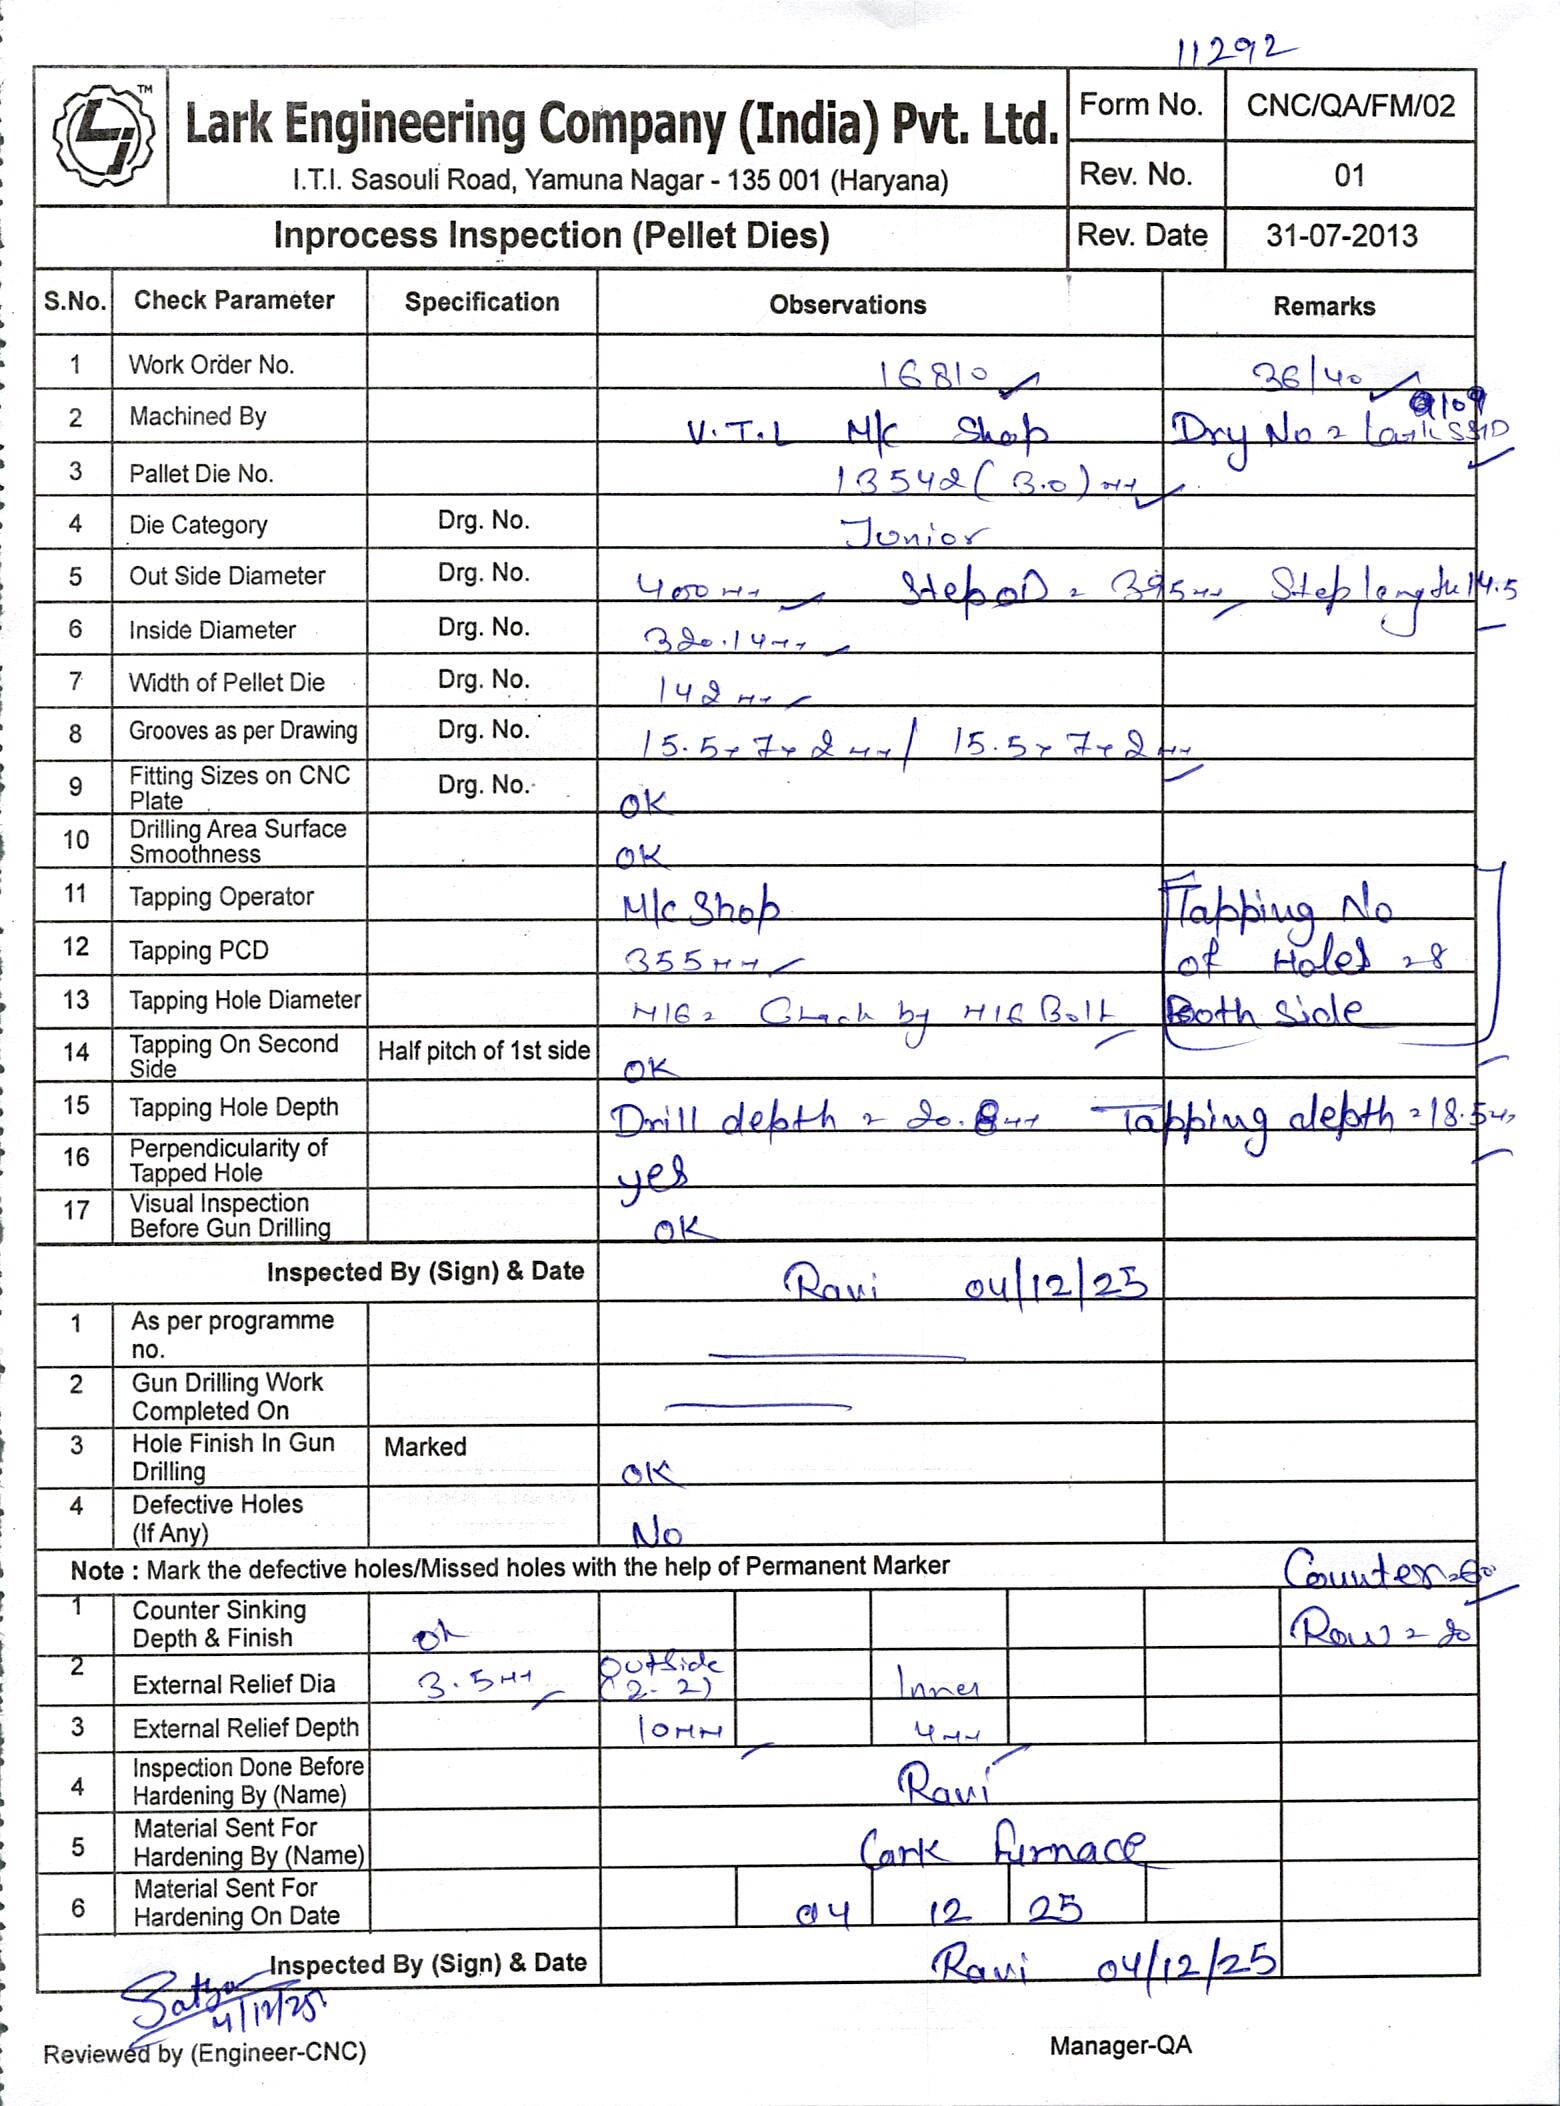 11292
TM
Lark Engineering Company (India) Pvt. Ltd.
I.T.I. Sasouli Road, Yamuna Nagar - 135 001 (Haryana)
Form No. CNC/QA/FM/02
Rev. No. 01
Inprocess Inspection (Pellet Dies)
Rev. Date 31-07-2013
S.No. Check Parameter Specification Observations Remarks
1 Work Order No. 16810 36/40
2 Machined By V.T.L M/c Shop Dry No = Lark
3 Pallet Die No. 13542 (3.0) mm
4 Die Category Drg. No. Junior
5 Out Side Diameter Drg. No. 400mm Step OD = 395mm Step length 14.5
6 Inside Diameter Drg. No. 320.14mm
7 Width of Pellet Die Drg. No. 142mm
8 Grooves as per Drawing Drg. No. 15.5x7x2mm / 15.5x7x2mm
9 Fitting Sizes on CNC Plate Drg. No. OK
10 Drilling Area Surface Smoothness OK
11 Tapping Operator M/c Shop Tapping No
12 Tapping PCD 355mm of Holes = 8
13 Tapping Hole Diameter M16 = Check by M16 Bolt Both Side
14 Tapping On Second Side Half pitch of 1st side OK
15 Tapping Hole Depth Drill depth = 20.8mm Tapping depth = 18.5mm
16 Perpendicularity of Tapped Hole yes
17 Visual Inspection Before Gun Drilling OK
Inspected By (Sign) & Date Ravi 04/12/25
1 As per programme no.
2 Gun Drilling Work Completed On
3 Hole Finish In Gun Drilling Marked OK
4 Defective Holes (If Any) No
Note : Mark the defective holes/Missed holes with the help of Permanent Marker Counter = 60
1 Counter Sinking Depth & Finish Ok Row = 20
2 External Relief Dia 3.5mm Outside (2-2) Inner
3 External Relief Depth 10mm 4mm
4 Inspection Done Before Hardening By (Name) Ravi
5 Material Sent For Hardening By (Name) Lark Furnace
6 Material Sent For Hardening On Date 04 12 25
Inspected By (Sign) & Date Ravi 04/12/25
4/12/25
Reviewed by (Engineer-CNC) Manager-QA